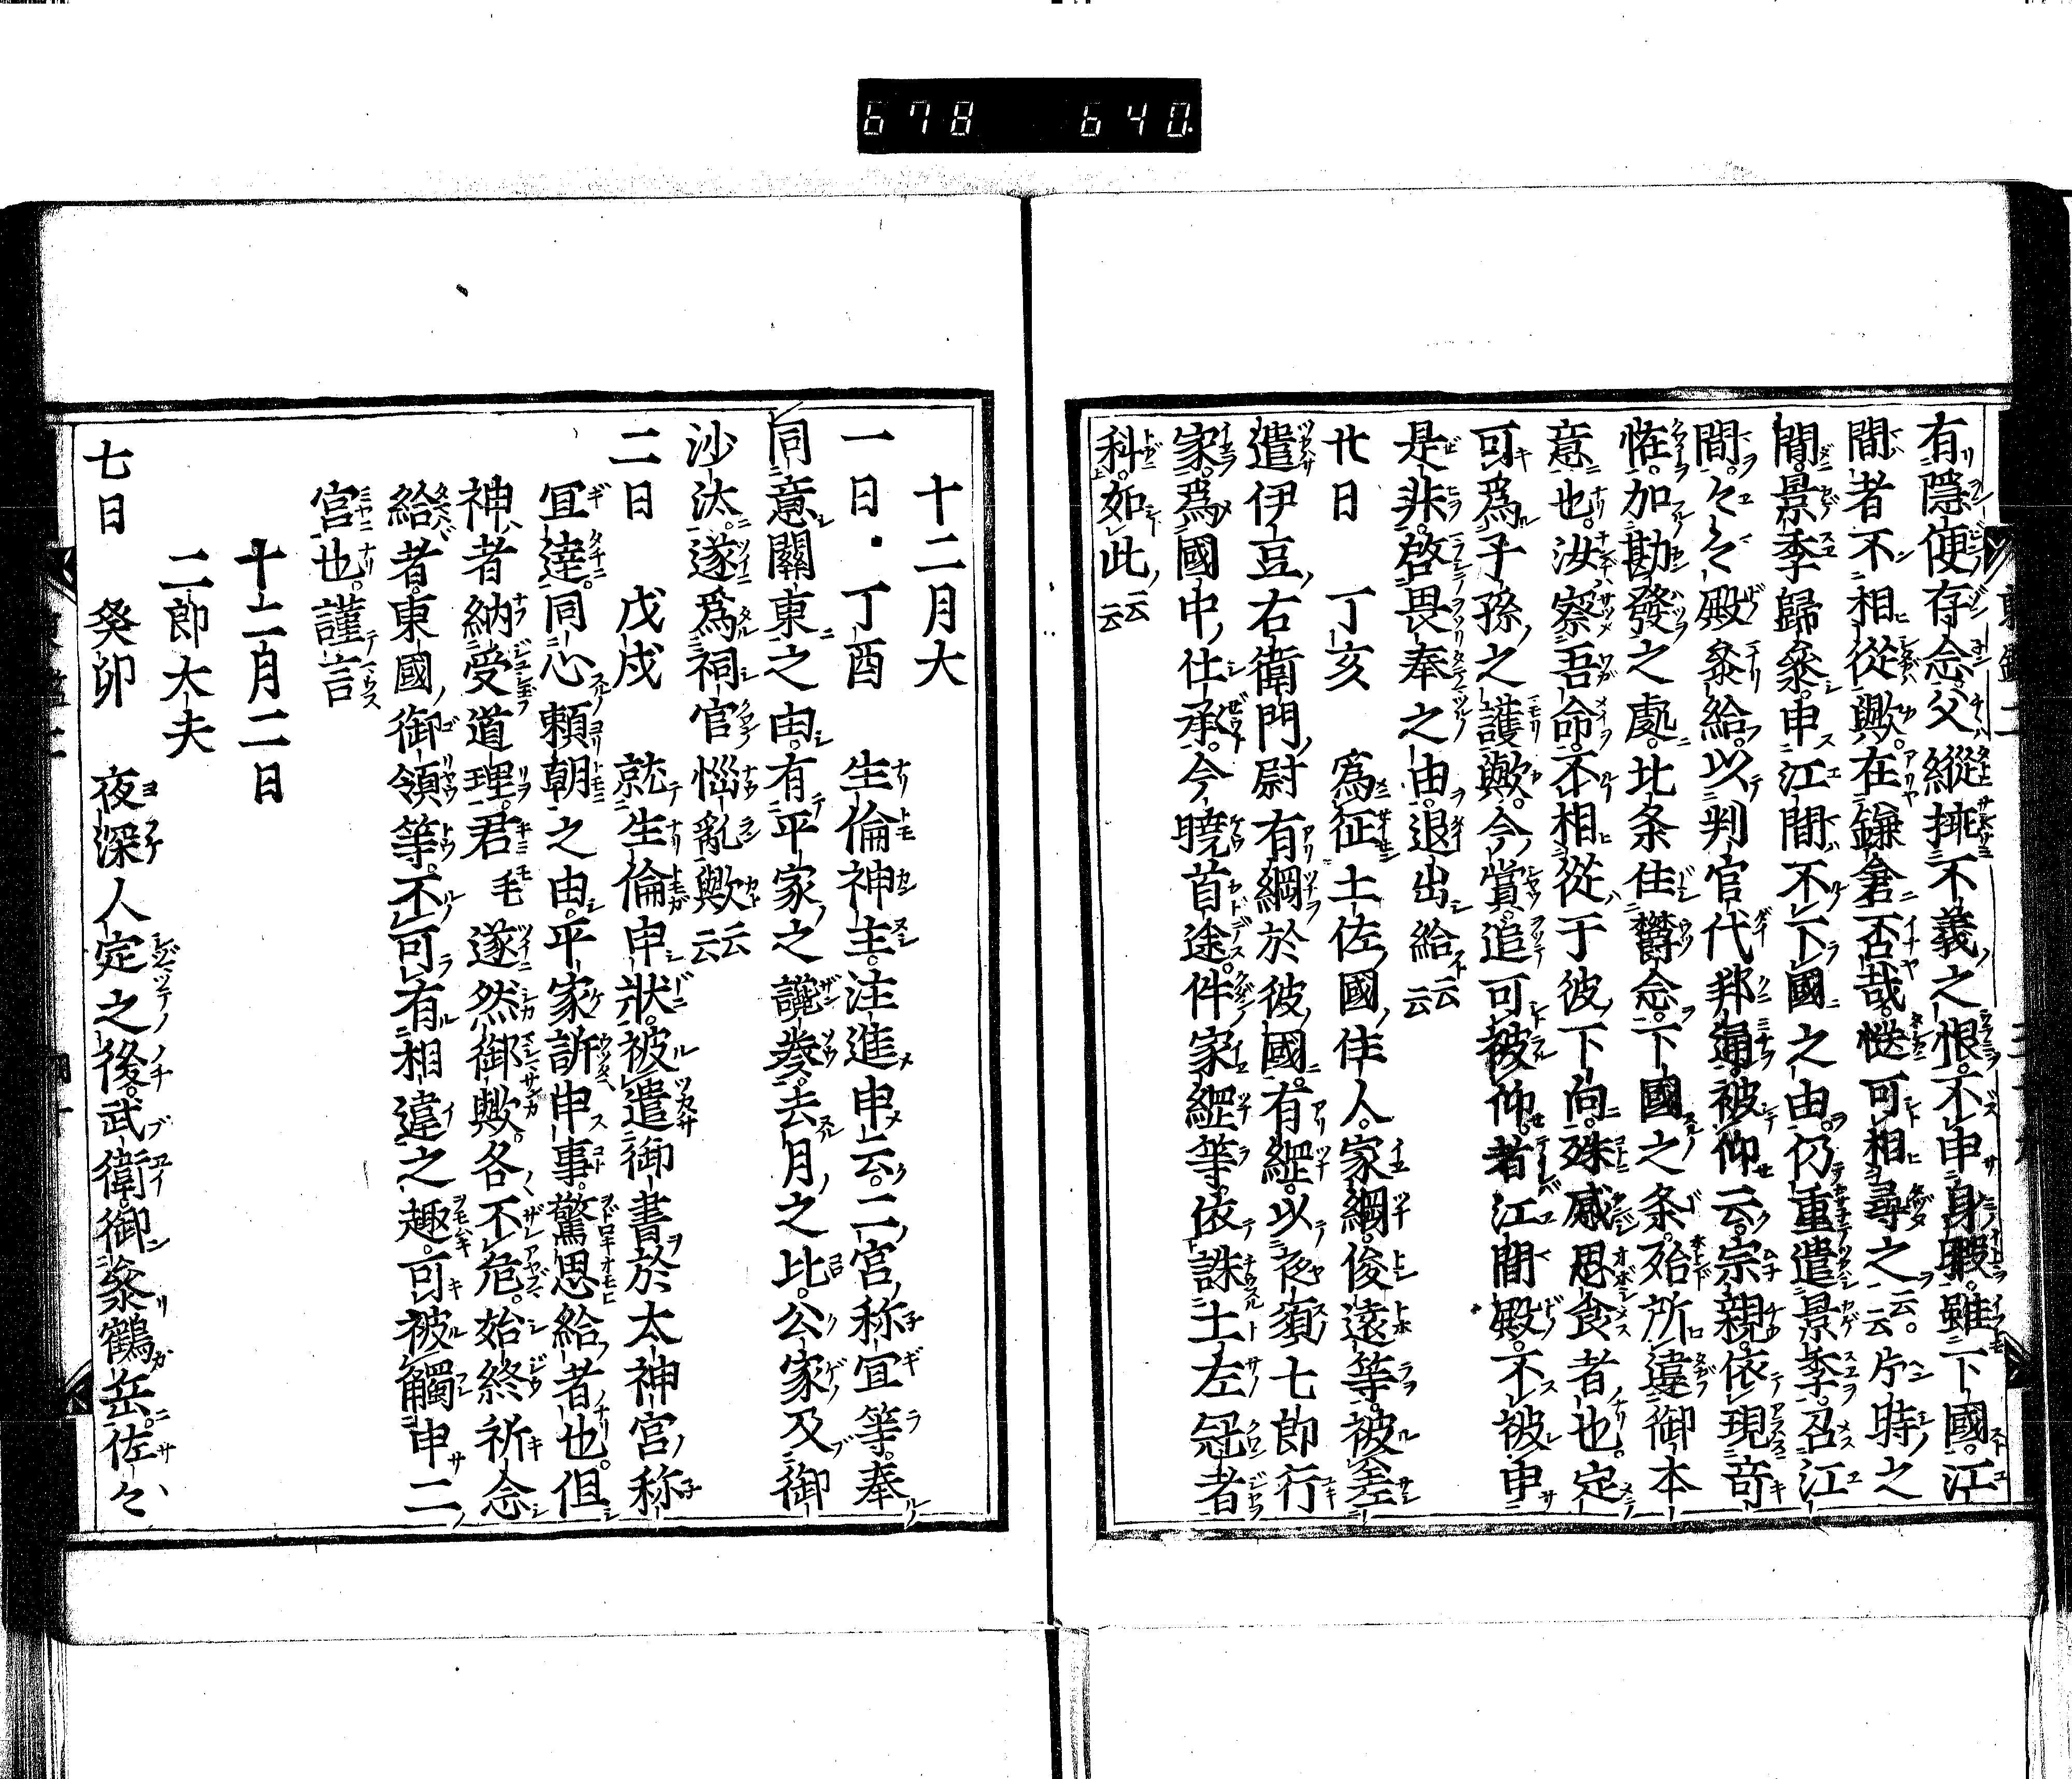 678 640.
有隱便存念父縱挾不義之恨不申身暇雖下國江
間者不相從歟在鎌倉否哉慥可相尋之云云片時之
間景季歸參申江間不下國之由仍重遣景季召江
間々々殿參給以判官代邦通被仰云宗親依現奇
恠加勘發之處比条住欝念下國之条殆所違御本
意也汝察吾命不相從于彼下向殊感思食者也定
可爲子孫之護歟今賞追可被仰者江間殿不被申
是非啓畏奉之由退出給云云
廿日 丁亥 爲征土佐國住人家綱俊遠等被差
遣伊豆右衛門尉有綱於彼國有經以夜須七郎行
家爲國中仕承今曉首途件家經等依誅土左冠者
科如此云云
十二月大
一日 丁酉 生倫神主注進申云二宮称宜等奉
同意關東之由有平家之讒奏去月之比公家及御
沙汰遂爲祠官惱亂歟云云
二日 戊戌 就生倫申狀被遣御書於太神宮称
宜達同心頼朝之由平家訴申事驚思給者也但
神者納受道理君モ遂然御歟各不危始終祈念
給者東國御領等不可有相違之趣可被觸申二
宮也謹言
十二月二日
二郎大夫
七日 癸卯 夜深人定之後武衛御參鶴岳佐々